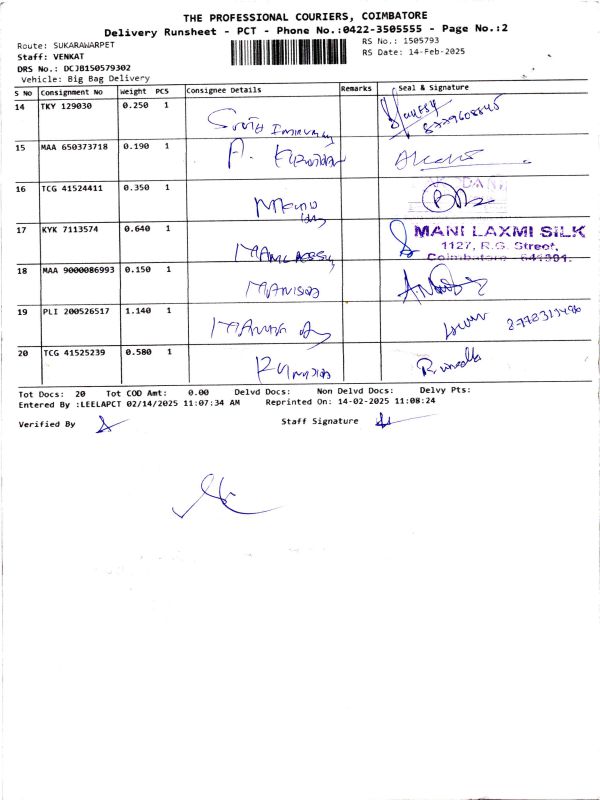 THE PROFESSIONAL COURIERS, COIMBATORE
Delivery Runsheet - PCT - Phone No.:0422-3505555 - Page No.:2
Route: SUKARAWARPET
RS No.: 1505793
Staff: VENKAT
RS Date: 14-Feb-2025
DRS No.: DCJB150579302
Vehicle: Big Bag Delivery
S No Consignment No Weight PCS Consignee Details Remarks Seal & Signature
14 TKY 129030 0.250 1
15 MAA 650373718 0.190 1 A.
16 TCG 41524411 0.350 1
17 KYK 7113574 0.640 1 MANI LAXMI SILK
1127, R.G. Street,
Coimbatore - 641001.
18 MAA 9000086993 0.150 1
19 PLI 200526517 1.140 1
20 TCG 41525239 0.580 1
Tot Docs: 20 Tot COD Amt: 0.00 Delvd Docs: Non Delvd Docs: Delvy Pts:
Entered By :LEELAPCT 02/14/2025 11:07:34 AM Reprinted On: 14-02-2025 11:08:24
Verified By Staff Signature